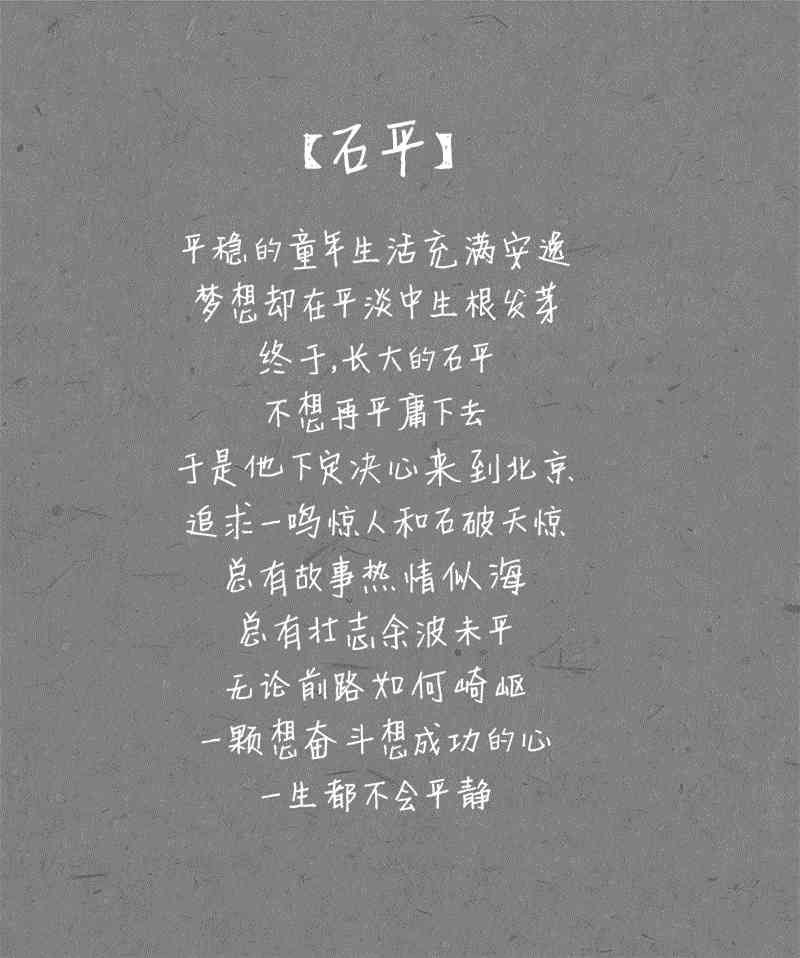 【石平】
平稳的童年生活充满安逸
梦想却在平淡中生根发芽
终于,长大的石平
不想再平庸下去
于是他下定决心来到北京
追求一鸣惊人和石破天惊
总有故事热情似海
总有壮志余波未平
无论前路如何崎岖
一颗想奋斗想成功的心
一生都不会平静